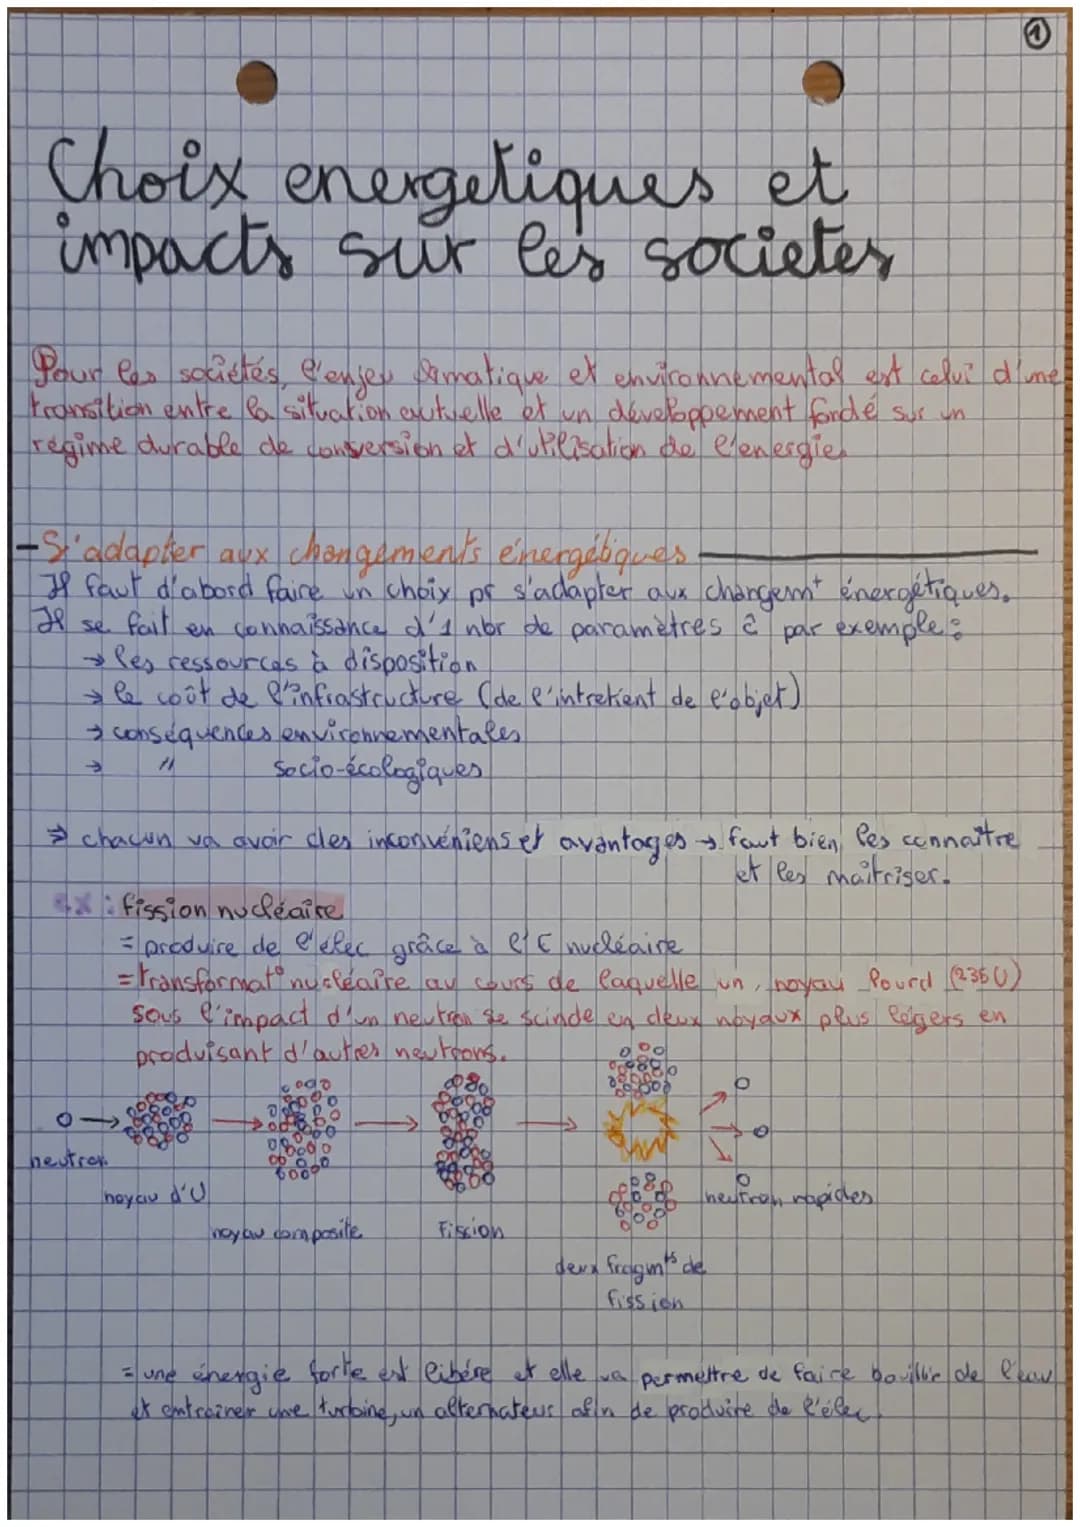 1
Choix energetiques et
impacts sur les societes
Pour les sociétés, l'enjeu limatique et environnemental est celui d'une
transition entre la situation autuelle et un développement fondé sur un
régime durable de conversion et d'utilisation de l'energie.
- S'adapter aux changements énergétiques
Il faut d'abord faire un choix pr s'adapter aux changemt énergétiques.
Il se fait en connaissance d'1 nbr de paramètres c par exemple :
→ les ressources à disposition
→ le coût de l'infrastructure (de l'intretient de l'objet)
→ conséquences environnementales
→ " socio-écologiques
⇒ chacun va avoir des inconvéniens et avantages → faut bien les connaître
et les maîtriser.
ex : fission nucléaire
= produire de l'élec grâce à l'E nucléaire
= transformat° nucléaire au cours de laquelle un noyau lourd (235U)
sous l'impact d'un neutron se scinde en deux noyaux plus légers en
produisant d'autres neutrons.
neutron
noyau d'U
noyau composite
Fission
neutron rapides
deux fragmts de
fission
= une énergie forte est libére et elle va permettre de faire bouillir de l'eau
et entraîner une turbine, un alternateur afin de produire de l'élec.